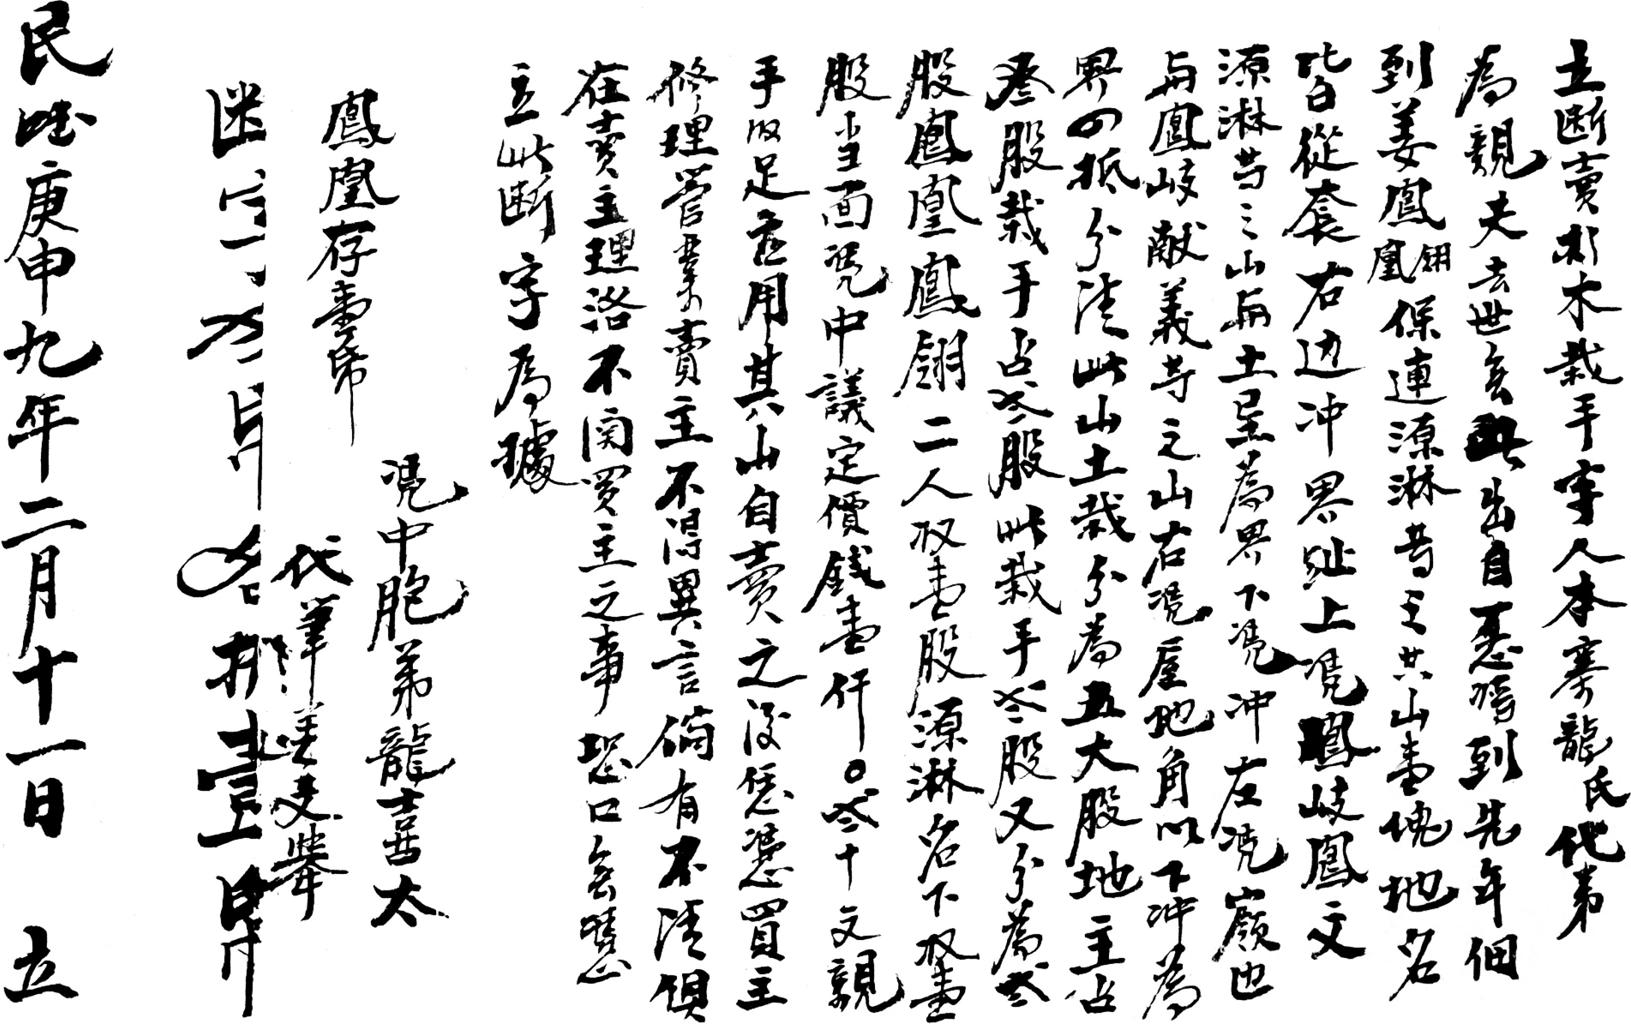 立断賣杉木栽手字人本寨龍氏代弟
為親夫去世無出自愿將到先年佃
到姜鳳凰翎保連源淋等之共山壹塊地名
皆從套右边冲界址上凭鳳岐鳳文
源淋等之山与土垦為界下凭冲左凭嶺也
与鳳岐献義等之山右凭屋地角以下冲為
界四抵分清此山土栽分為五大股地主占
叁股栽手占贰股此栽手贰股又分為贰
股鳳凰鳳翎二人收壹股源淋名下收壹
股当面凭中議定價錢壹仟〇叁十文親
手收足應用其山自賣之後恁憑買主
修理管業賣主不得異言倘有不清俱
在賣主理洛不関買主之事恐口無憑
立此断字為據
凭中胞弟龍喜太
鳳凰存壹帋
代筆姜叟舉
民囯庚申九年二月十一日 立